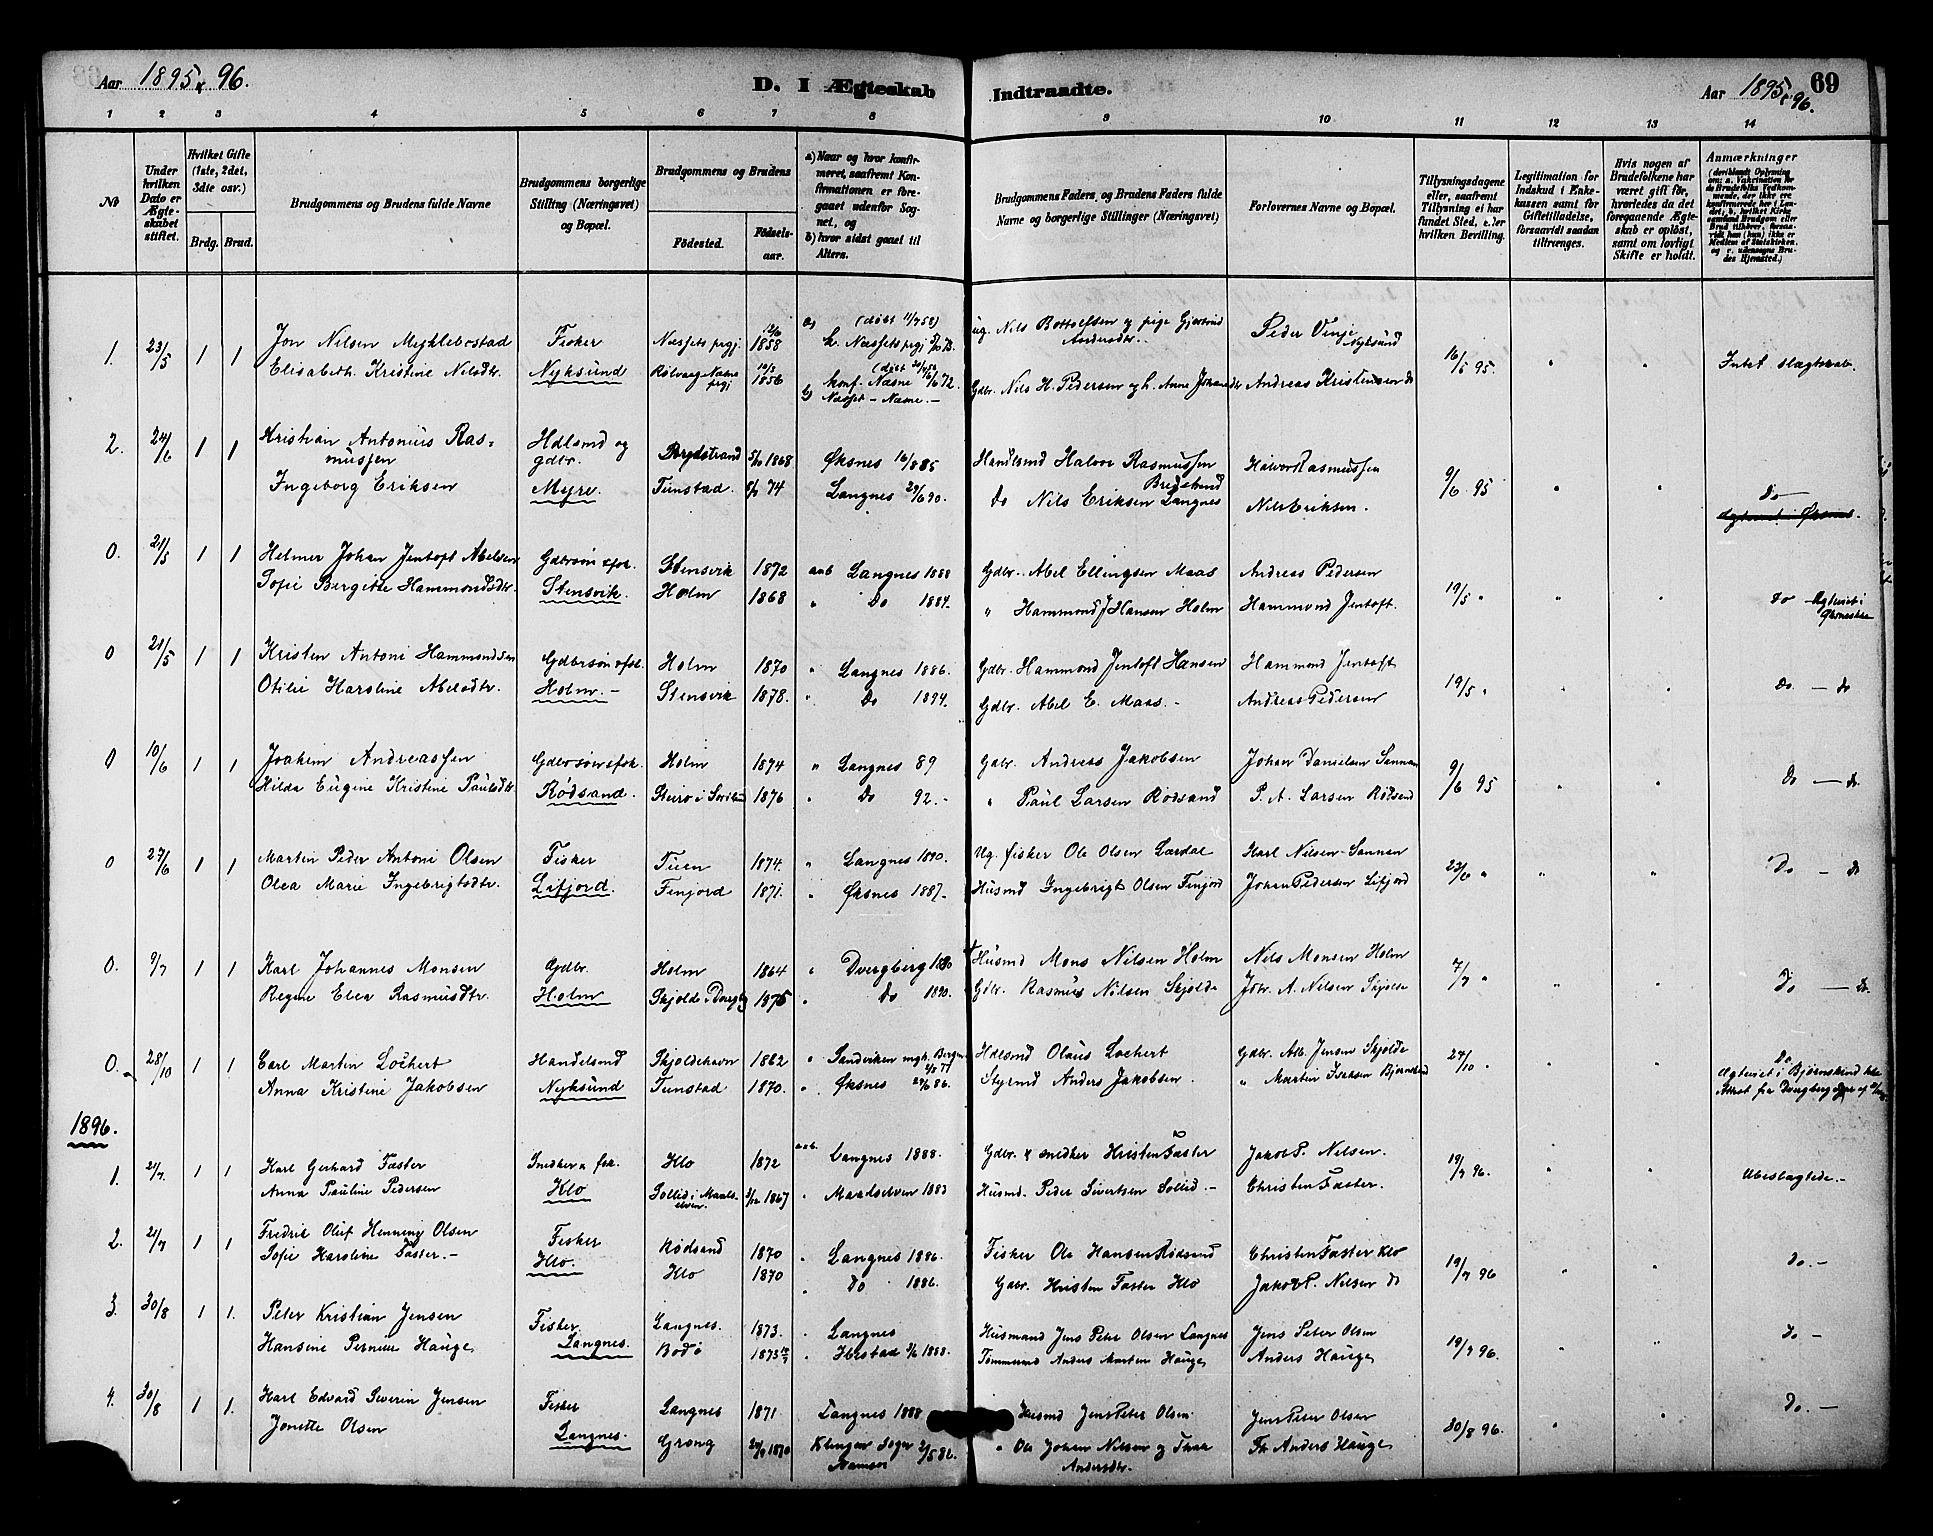 Aar 1895 & 96.
D. I Ægteskab Indtraadte.
Aar 1895 & 96.
69
1 2 3 4 5 6 7 8 9 10 11 12 13 14
No
Under hvilken Dato er Ægteskabet stiftet.
Hvilket Gifte (1ste, 2det, 3die osv.)
Brdg. Brud.
Brudgommens og Brudens fulde Navne
Brudgommens borgerlige Stilling (Næringsvei) og Bopæl.
Brudgommens og Brudens
Födested.
Födselsaar.
a) Naar og hvor konfirmeret, saafremt Konfirmationen er foregaaet udenfor Sognet, og
b) hvor sidst gaaet til Alters.
Brudgommens Faders, og Brudens Faders fulde Navne og borgerlige Stillinger (Næringsvei)
Forlovernes Navne og Bopæl.
Tillysningsdagene eller, saafremt Tillysning ei har fundet Sted, efter hvilken Bevilling.
Legitimation for Indskud i Enkekassen samt for Giftetilladelse, forsaavidt saadan tiltrænges.
Hvis nogen af Brudefolkene har været gift før, hvorledes da det foregaaende Ægteskab er opløst, samt om lovligt Skifte er holdt.
Anmærkninger
1. 23/5 1 1 Jon Nilsen Myklebostad Fisker Næssets prgj. 12/6 1858 a) (døbt 11/7 58) k. Næssets prgj. ug. Nils Bottolfsen og pige Gjertrud Andersdtr. Peder Vinje Nyksund 16/5 95. Intet slægtskab.
Elisabeth Kristine Nilsdtr. Nyksund Rölvaag Næsne prgj 1856 konf. Næsne 72. b) Næsset - Næsne. - Gdbr. Nils H. Pedersen og h. Anne Johansdtr Andreas Kristensen do
2. 24/6 1 1 Kristian Antonius Rasmussen Hdlsmd og gdbr. 1868 Øksnes 16/8 85 Handlsmd Halvor Rasmussen Halvor Rasmussen 9/6 95 do
Ingeborg Eriksen Myre. Tunstad. 74 Langnes 29/6 90. do Nils Eriksen Langnes Nils Eriksen.
0. 21/5 1 1 Helmer Johan Jentoft Abelsen Gdbrsøn & fsk. Stensvik 1872 aab Langnes 1888 Gdbr. Abel Ellingsen Maas Andreas Pedersen 19/5 "
Sofie Bergitte Hammondsdtr. Stensvik. Holm 1868 " Do 1884. " Hammond J Hansen Holm Hammond Jentoft. do Ægteviet i
0 21/5 1 1 Kristen Antoni Hammondsen Gdbrsøn & fsk. Holm 1870 " Langnes 1886. Gdbr. Hammond Jentoft Hansen Hammond Jentoft 19/5 " Do. - do
Otilie Karoline Abelsdtr. Holm. - Stensvik 1878. " Do 1894. Gdbr. Abel E. Maas. - Andreas Pedersen
0 10/6 1 1 Joakim Andreassen Gdbrsøn & fsk. Holm 1874 " Langnes 89 Gdbr. Andreas Jakobsen Johan Danielsen Sannan 9/6 95 do - do.
Hilda Eugine Kristine Paulsdtr. Rödsand. 1876 " Do 92. - " Paul Larsen Rödsand P. A. Larsen Rödsand
0 27/6 1 1 Martin Peder Antoni Olsen Fisker Tuen 1874. " Langnes 1890. Ug. fisker Ole Olsen Lærdal Karl Nilsen Sannan 23/6 " Do - do
Olea Marie Ingebrigtsdtr. Lifjord. Finjord 1871. " Øksnes 1887. - Husmd Ingebrigt Olsen Finjord Johan Pedersen Lifjord
0. 9/7 1 1 Karl Johannes Monsen Gdbr. Holm 1864 " Dverberg 1880 Husmd Mons Nilsen Holm Nils Monsen Holm 7/7 " Do - do.
Regine Elea Rasmusdtr. Holm Skjolde i Dverbg 1875 " Do 1890. Gdbr. Rasmus Nilsen Skjolde Joh. A. Nilsen Skjolde
0. 28/10 1 1 Carl Martin Lochert Handelsmd Skjoldehavn 1862 " Sandviken mgh. Bergen Hdlsmd Olaus Lochert Gdbr. Alb. Jensen Skjolde 27/10 " Do
Anna Kristine Jakobsen Nyksund Tunstad 1870. " Øksnes 29/6 86. Styrmd Anders Jakobsen. " Martin Isaksen Ægteviet i Bjørnskind
1896.
1. 21/7. 1 1 Karl Gerhard Faster Snedker & fsk. Klo 1872 aab. Langnes 1888. Gdbr. & snedker Kristen Faster Jakob P. Nilsen. 19/7 96. Ubeslægtede. -
Anna Pauline Pedersen Klo Sollid i Maalselven. 1867 " Maalselven 1883 Husmd. Peder Sivertsen Sollid. - Christen Faster.
2. 21/7 1 1 Fredrik Oluf Henning Olsen Fisker Rödsand 1870 " Langnes 1886. Fisker Ole Hansen Rödsand Christen Faster Klo 19/7 96 do. -
Sofie Karoline Faster. - Klo. Klo 1870 " Do 1886. Gdbr. Kristen Faster Klo Jakob P. Nilsen do
3. 30/8 1 1. Peter Kristian Jensen Fisker Langnes. 1873. " Langnes Husmand Jens Peter Olsen Langnes Jens Peter Olsen 19/7 96. do -
Hansine Hauge Langnes. Bodö 1873 " Ibestad 1888. Tømmermd Anders Morten Hauge Anders Hauge
4. 30/8 1 1. Karl Edvard Severin Jensen Fisker Langnes 1871 Langnes 1888 Husmd Jens Peter Olsen Jens Peter Olsen 30/8 96. do. -
Jonette Olsen Langnes. Grong 1870 Klingen Sogn 86. Namsos " Ole Johan Nilsen og Andersdtr. Anders Hauge